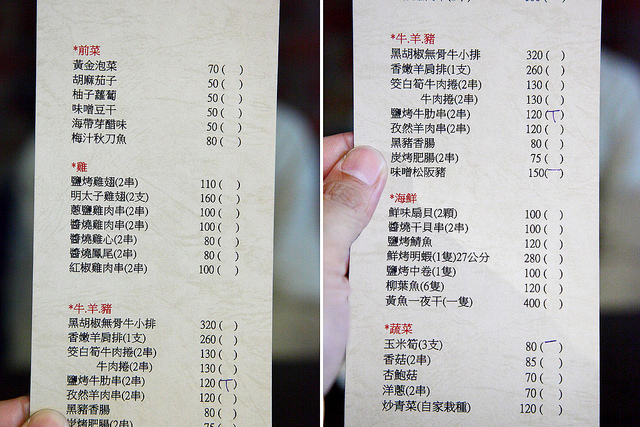 *前菜
黃金泡菜 70 ( )
胡麻茄子 50 ( )
柚子蘿蔔 50 ( )
味噌豆干 50 ( )
海帶芽醋味 50 ( )
梅汁秋刀魚 80 ( )
*雞
鹽烤雞翅(2串) 110 ( )
明太子雞翅(2支) 160 ( )
蔥鹽雞肉串(2串) 100 ( )
醬燒雞肉串(2串) 100 ( )
醬燒雞心(2串) 80 ( )
醬燒鳳尾(2串) 80 ( )
紅椒雞肉串(2串) 100 ( )
*牛.羊.豬
黑胡椒無骨牛小排 320 ( )
香嫩羊肩排(1支) 260 ( )
筊白筍牛肉捲(2串) 130 ( )
牛肉捲(2串) 130 ( )
鹽烤牛肋串(2串) 120 (丅)
孜然羊肉串(2串) 120 ( )
黑豬香腸 80 ( )
炭烤肥腸(2串) 75 ( )
*牛.羊.豬
黑胡椒無骨牛小排 320 ( )
香嫩羊肩排(1支) 260 ( )
筊白筍牛肉捲(2串) 130 ( )
牛肉捲(2串) 130 ( )
鹽烤牛肋串(2串) 120 (丅)
孜然羊肉串(2串) 120 ( )
黑豬香腸 80 ( )
炭烤肥腸(2串) 75 ( )
味噌松阪豬 150(一)
*海鮮
鮮味扇貝(2顆) 100 ( )
醬燒干貝串(2串) 100 ( )
鹽烤鯖魚 120 ( )
鮮烤明蝦(1隻)27公分 280 ( )
鹽烤中卷(1隻) 100 ( )
柳葉魚(6隻) 120 ( )
黃魚一夜干(一隻) 400 ( )
*蔬菜
玉米筍(3支) 80 (一)
香菇(2串) 85 ( )
杏鮑菇 70 ( )
洋蔥(2串) 70 ( )
炒青菜(自家栽種) 120 ( )